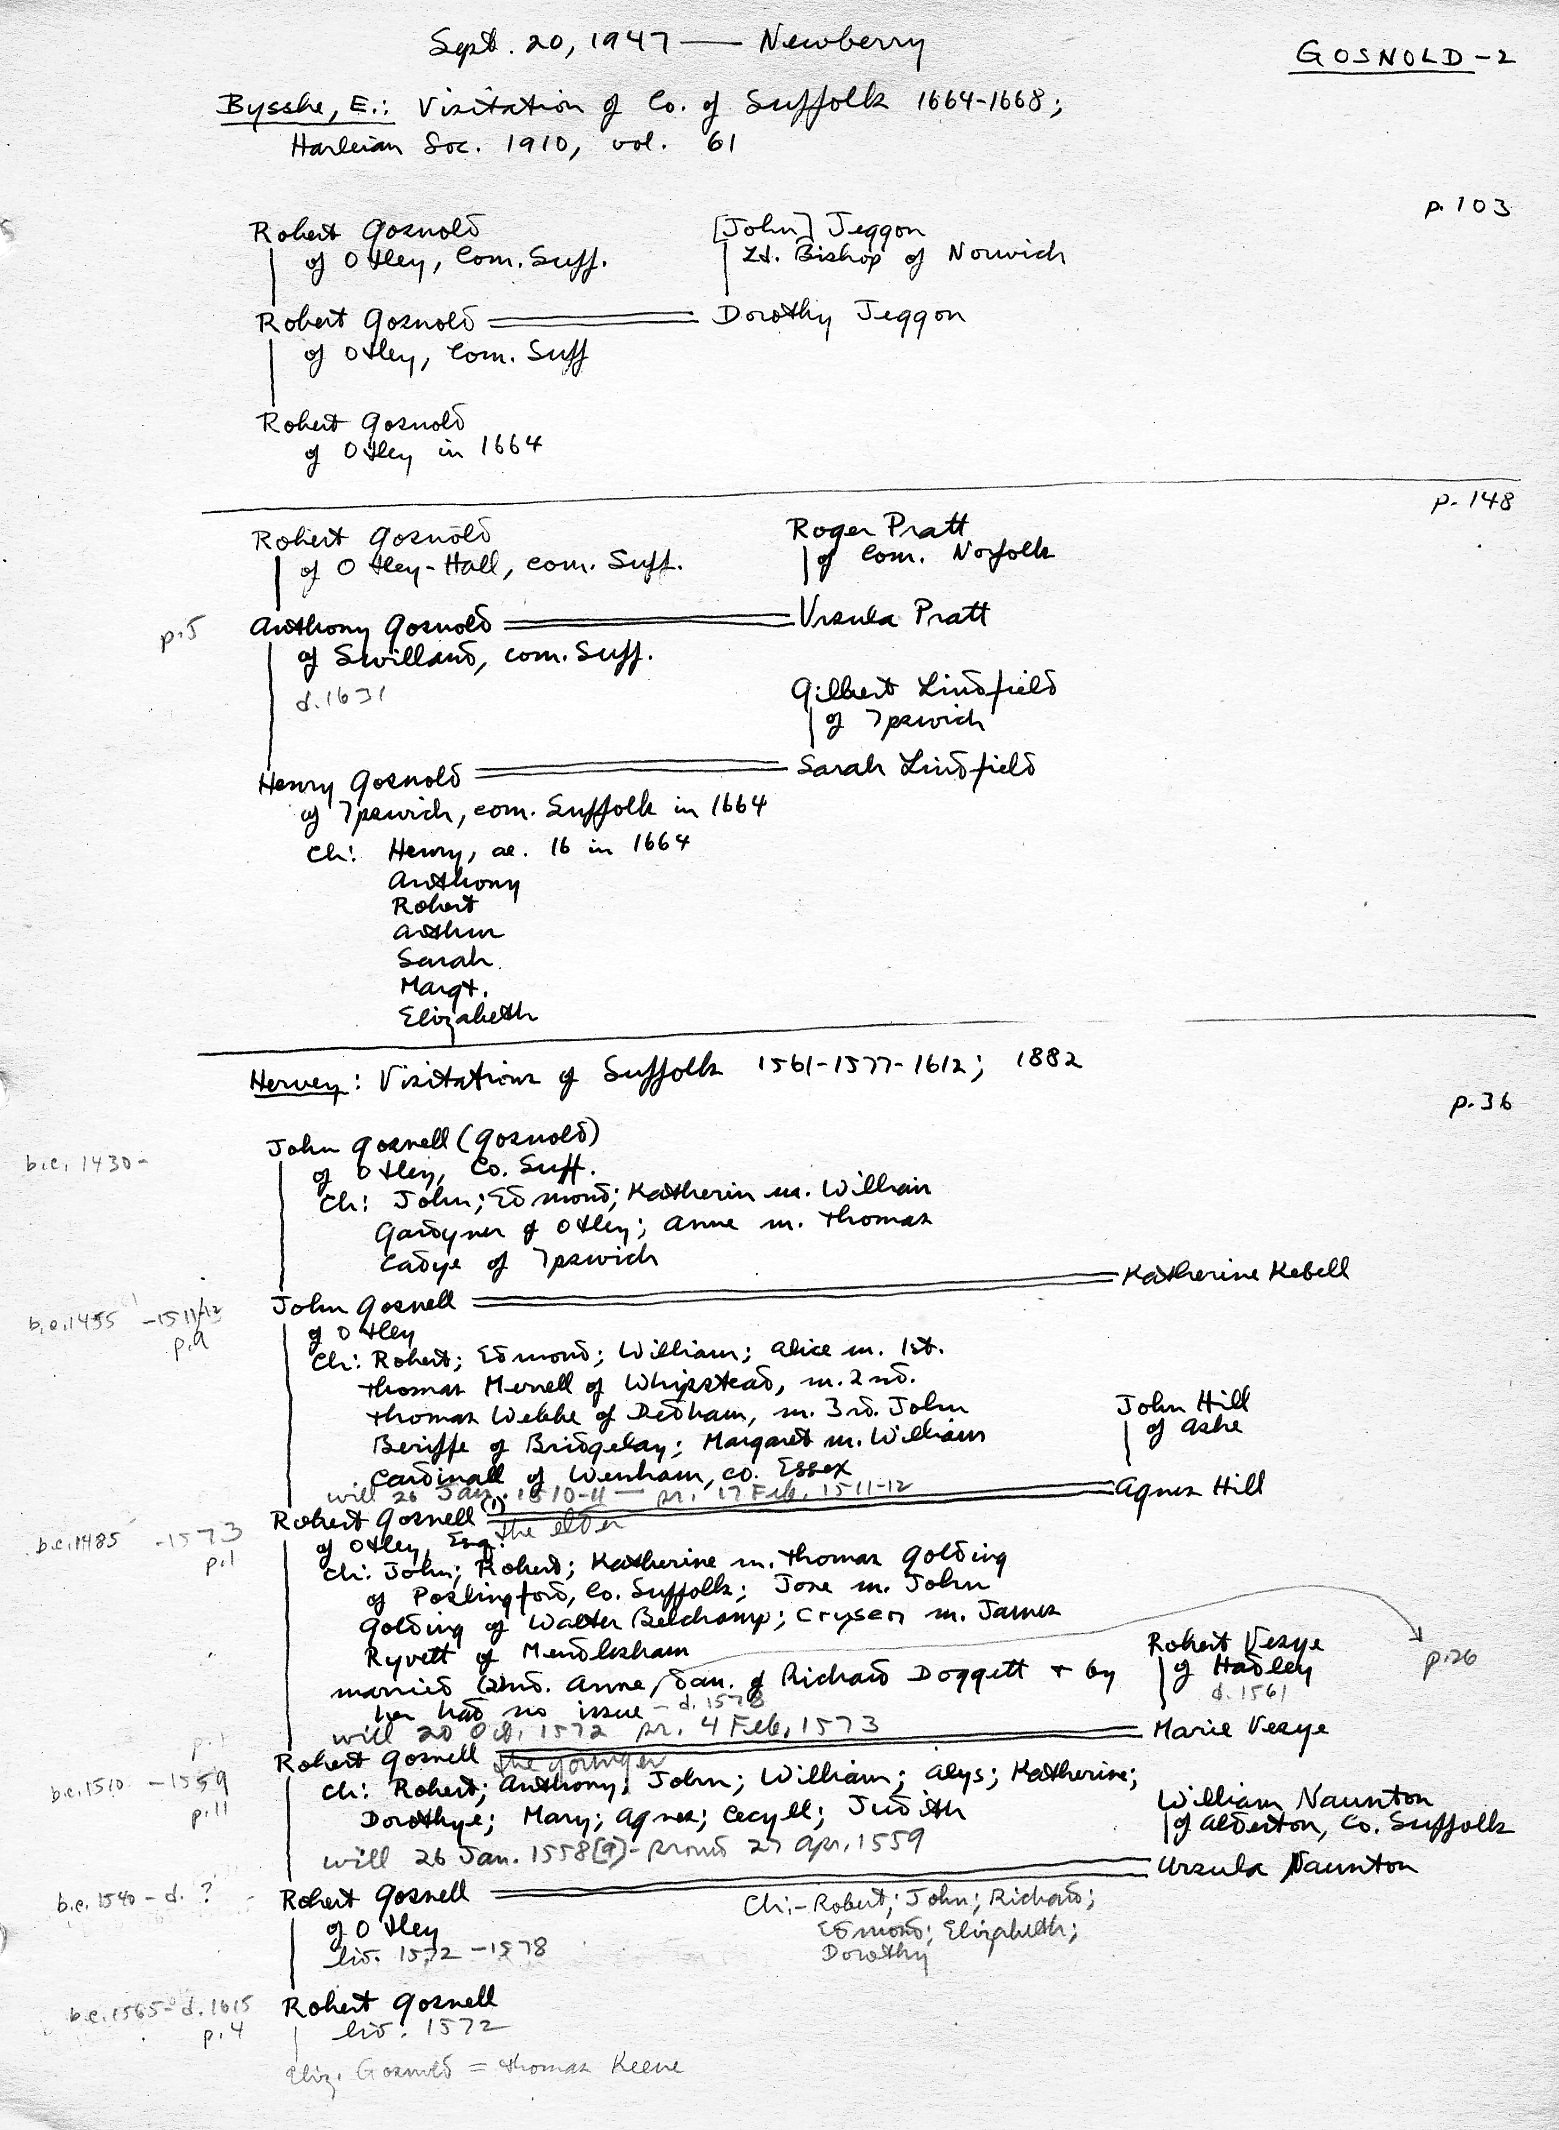 Sept. 20, 1947 — Newberry
GOSNOLD-2
Bysshe, E.: Visitation of Co. of Suffolk 1664-1668;
Harleian Soc. 1910, vol. 61
p. 103
Robert Gosnold
of Otley, Com. Suff.
[John] Jeggon
Ld. Bishop of Norwich
Robert Gosnold
of Otley, Com. Suff
Dorothy Jeggon
Robert Gosnold
of Otley in 1664
p. 148
Robert Gosnold
of Otley-Hall, com. Suff.
Roger Pratt
of Com. Norfolk
p.5
Anthony Gosnold
of Swilland, com. Suff.
d. 1631
Ursula Pratt
Gilbert Lindfield
of Ipswich
Henry Gosnold
Sarah Lindfield
of Ipswich, com. Suffolk in 1664
Ch: Henry, ae. 16 in 1664
Anthony
Robert
Arthur
Sarah
Margt.
Elizabeth
Hervey: Visitations of Suffolk 1561-1577-1612; 1882
p.36
b.c. 1430-
John Gosnell (Gosnold)
of Otley, Co. Suff.
Ch: John; Edmond; Katherin m. William
Gardyner of Otley; Anne m. Thomas
Cadye of Ipswich
Katherine Kebell
b.c. 1455 -1511/12
p.9
John Gosnell
of Otley
Ch: Robert; Edmond; William; Alice m. 1st.
Thomas Merell of Whipstead, m. 2nd.
Thomas Webbe of Dedham, m. 3rd. John
Beriffe of Bridgelay; Margaret m. William
Cardinall of Wenham, co. Essex
will 26 Jan. 1510-11 — pr. 17 Feb. 1511-12
John Hill
of Ashe
Agnes Hill
b.c. 1485 -1573
p.1
Robert Gosnell (1)
the elder
of Otley, Esq.
Ch: John; Robert; Katherine m. Thomas Golding
of Poslingford, Co. Suffolk; Jose m. John
Golding of Walter Belchamp; Crysen m. James
Ryvett of Mendlesham
married 2nd. Anne, dau. of Richard Doggett + by
her had no issue - d. 1578
will 20 Oct. 1572 pr. 4 Feb. 1573
p.26
Robert Vesye
of Hadley
d. 1561
Marie Vesye
p.1
b.c. 1510 -1559
p.11
Robert Gosnell the younger
Ch: Robert; Anthony; John; William; Alys; Katherine;
Dorothye; Mary; Agnes; Cecyll; Judith
will 26 Jan. 1558[9]- proved 27 Apr. 1559
William Naunton
of Alderton, Co. Suffolk
Ursula Naunton
b.c. 1540 - d. ?
Robert Gosnell
of Otley
liv. 1572 - 1578
Ch:- Robert; John; Richard;
Edmond; Elizabeth;
Dorothy
b.c. 1565 - d. 1615
p.4
Robert Gosnell
liv. 1572
Eliz. Gosnold = Thomas Keene